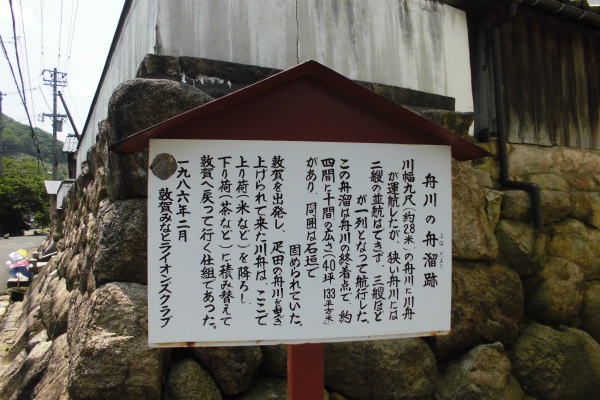 舟川の舟溜跡
ふなだまり
川幅九尺(約2.8米)の舟川に川舟
が運航したが、狭い舟川には
二艘の並航はできず、三艘ほど
が一列となって航行した。
この舟溜は舟川の終着点で、約
四間に十間の広さ(40坪 133平方米)
があり、周囲は石垣で
固められていた。
敦賀を出発し、疋田の舟川を曳き
上げられて来た川舟は、ここで
上り荷(米など)を降ろし、
下り荷(茶など)に積み替えて
敦賀へ戻って行く仕組であった。
一九八六年二月
敦賀みなとライオンズクラブ